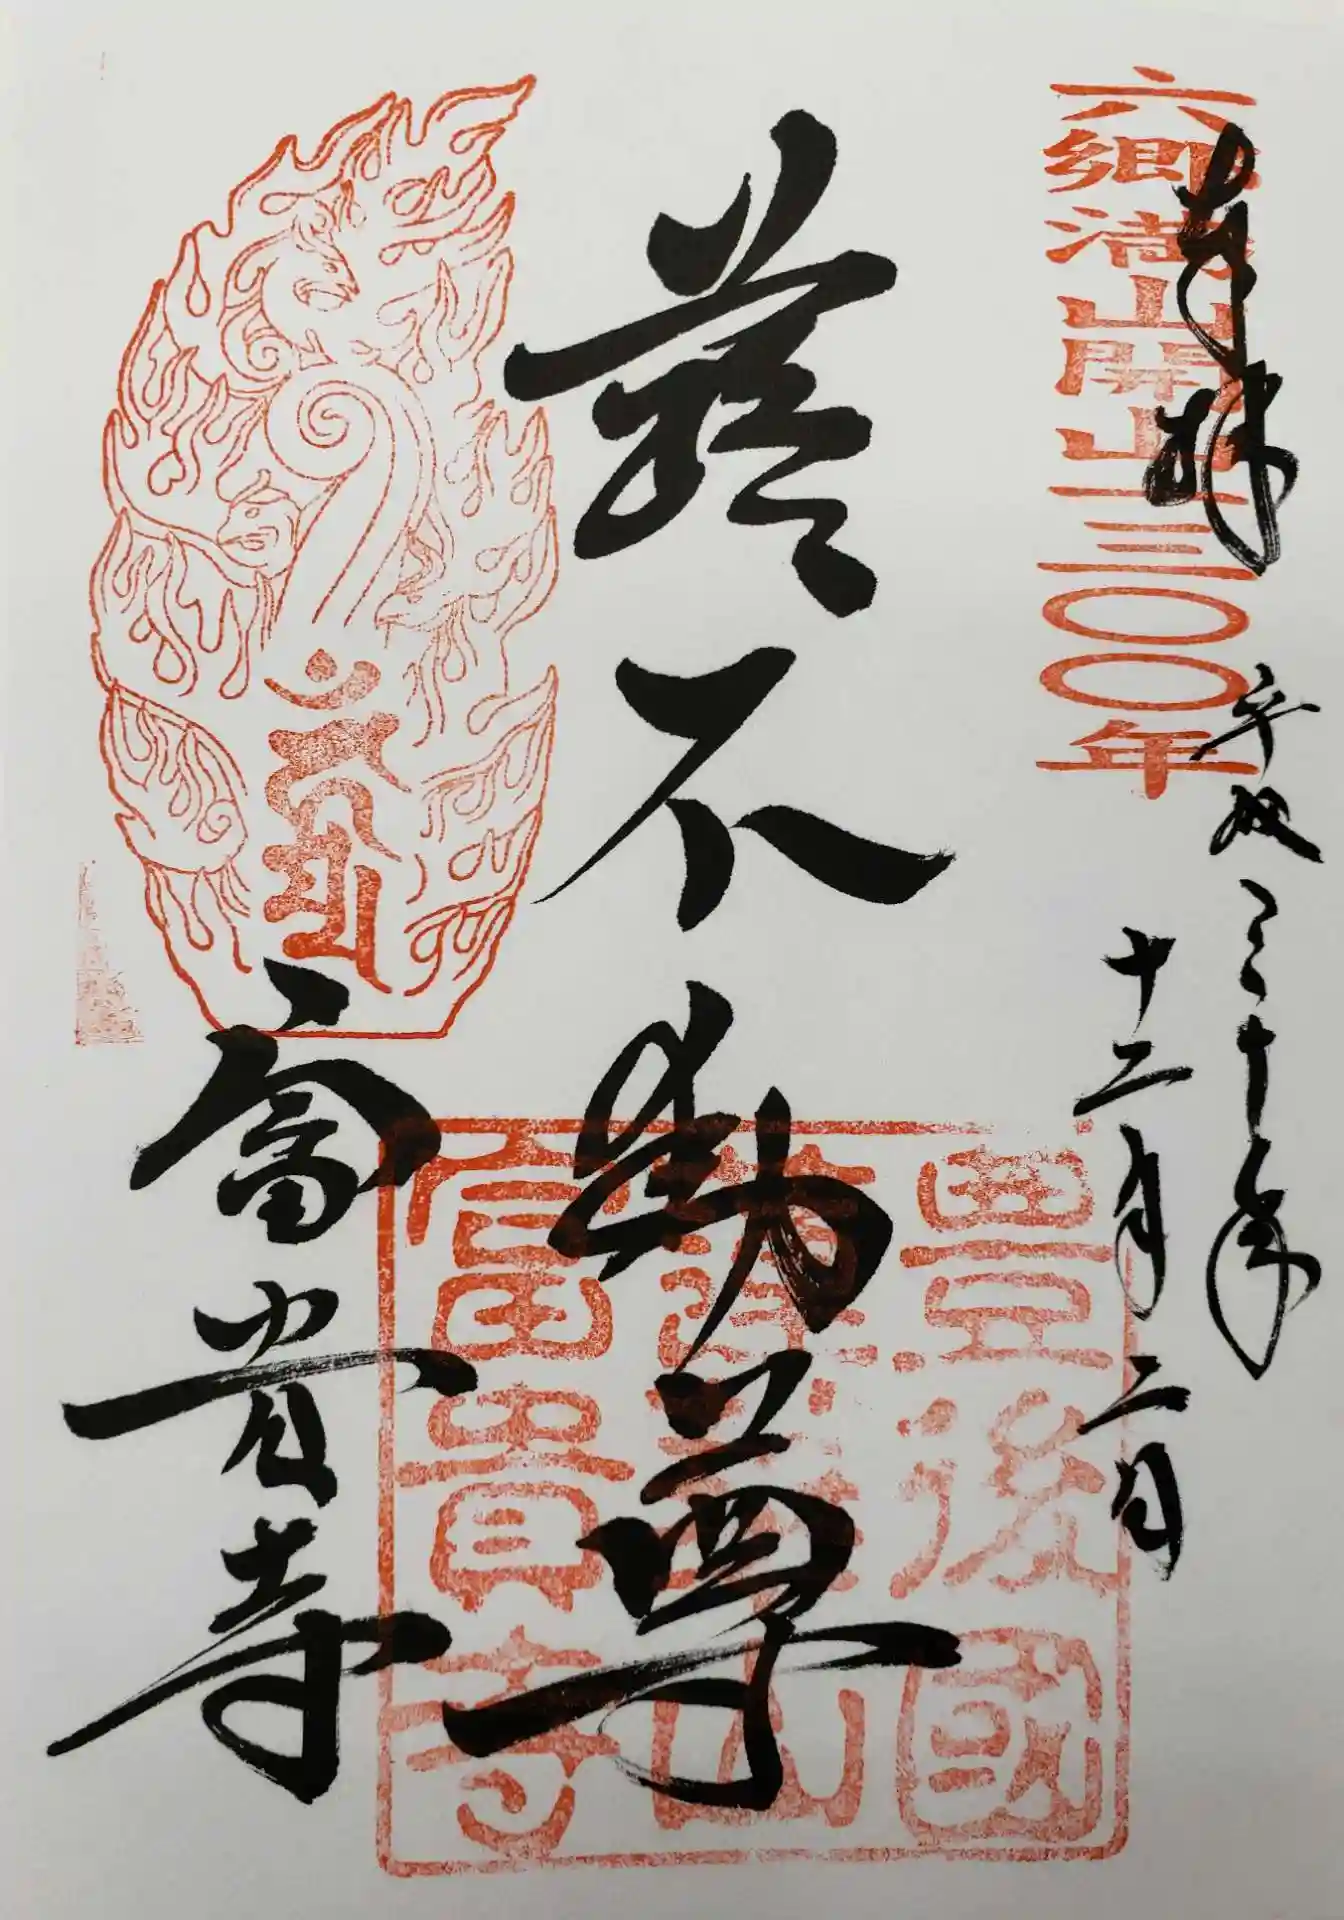 六郷満山開山一三〇〇年
奉拝
平成三十年
十二月二日
蕗不動尊
富貴寺
豐後國
蓮華山
富貴寺